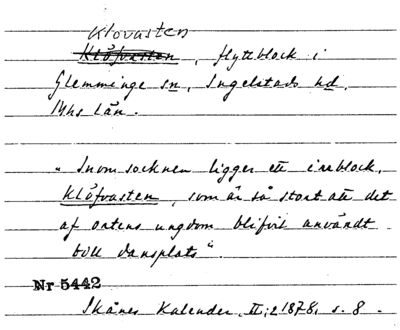 Klovasten
Klöfvasten, flyttblock i
Glemminge sn, Ingelstads hd,
Mhs län.
"Inom socknen ligger ett irrblock,
Klöfvasten, som är så stort att det
af ortens ungdom blifvit användt
till dansplats".
Nr 5442
Skånes Kalender, II; 2 1878, s. 8.